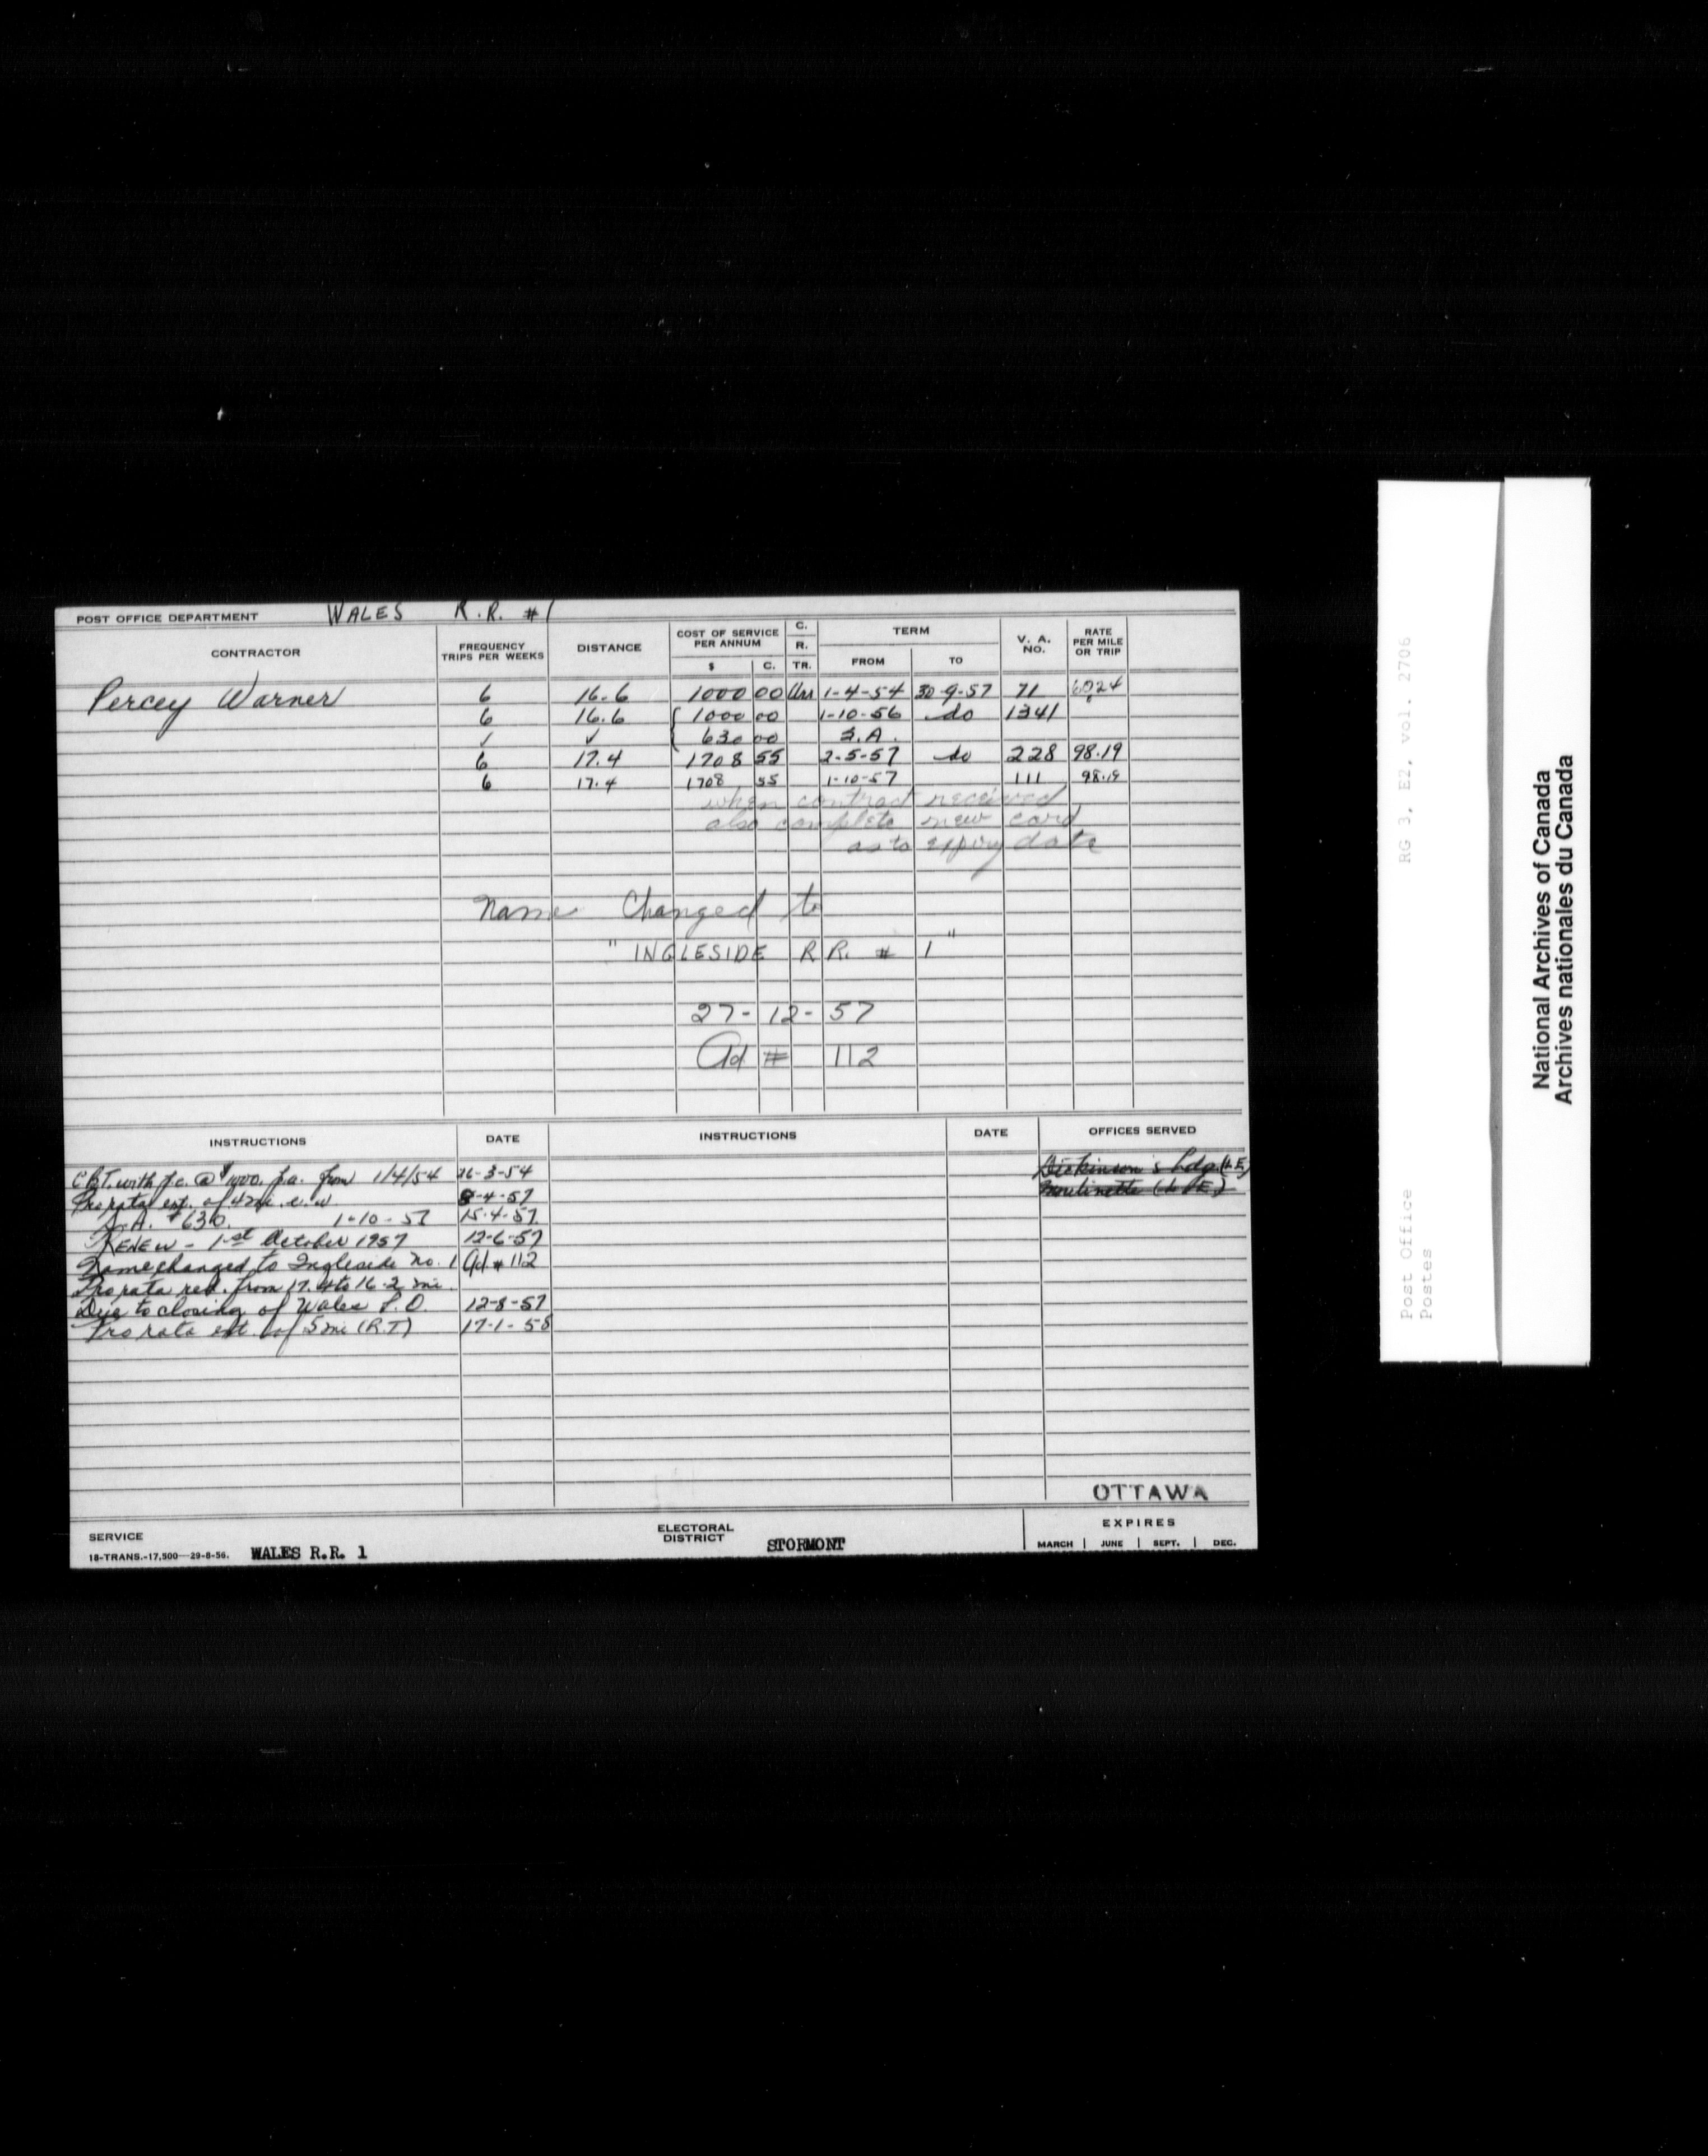 POST OFFICE DEPARTMENT WALES R.R. #1
CONTRACTOR FREQUENCY TRIPS PER WEEKS DISTANCE COST OF SERVICE PER ANNUM $ C. C. R. TR. TERM FROM TO V. A. NO. RATE PER MILE OR TRIP
Percey Warner 6 16.6 1000 00 1-4-54 30-9-57 71 60.24
6 16.6 1000 00 1-10-56 do 1341
✓ ✓ 630 00 S.A.
6 17.4 1708 55 2-5-57 do 228 98.19
6 17.4 1708 55 1-10-57 111 98.19
when contract received
also complete new card
as to expiry date
Name Changed to
" INGLESIDE R R. # 1 "
27-12-57
Ad # 112
INSTRUCTIONS DATE INSTRUCTIONS DATE OFFICES SERVED
C.B.T. with p.c. @ $1000. p.a. from 1/4/54 26-3-54 Dickinson's Ldg. (L.E)
Pro rata ext. of .4 mi. e.w 8-4-57 Moulinette (L & E)
S.A. $630. 1-10-57 15-4-57
RENEW - 1st October 1957 12-6-57
Name changed to Ingleside no. 1 Ad # 112
Pro rata red. from 17.4 to 16.2 mi.
Due to closing of Wales P.O. 12-8-57
Pro rata ext of .5 mi (R.T) 17-1-58
OTTAWA
SERVICE
18-TRANS.-17,500—29-8-56. WALES R.R. 1
ELECTORAL DISTRICT STORMONT
EXPIRES
MARCH | JUNE | SEPT. | DEC.
RG 3, E2, vol. 2706
Post Office
Postes
National Archives of Canada
Archives nationales du Canada